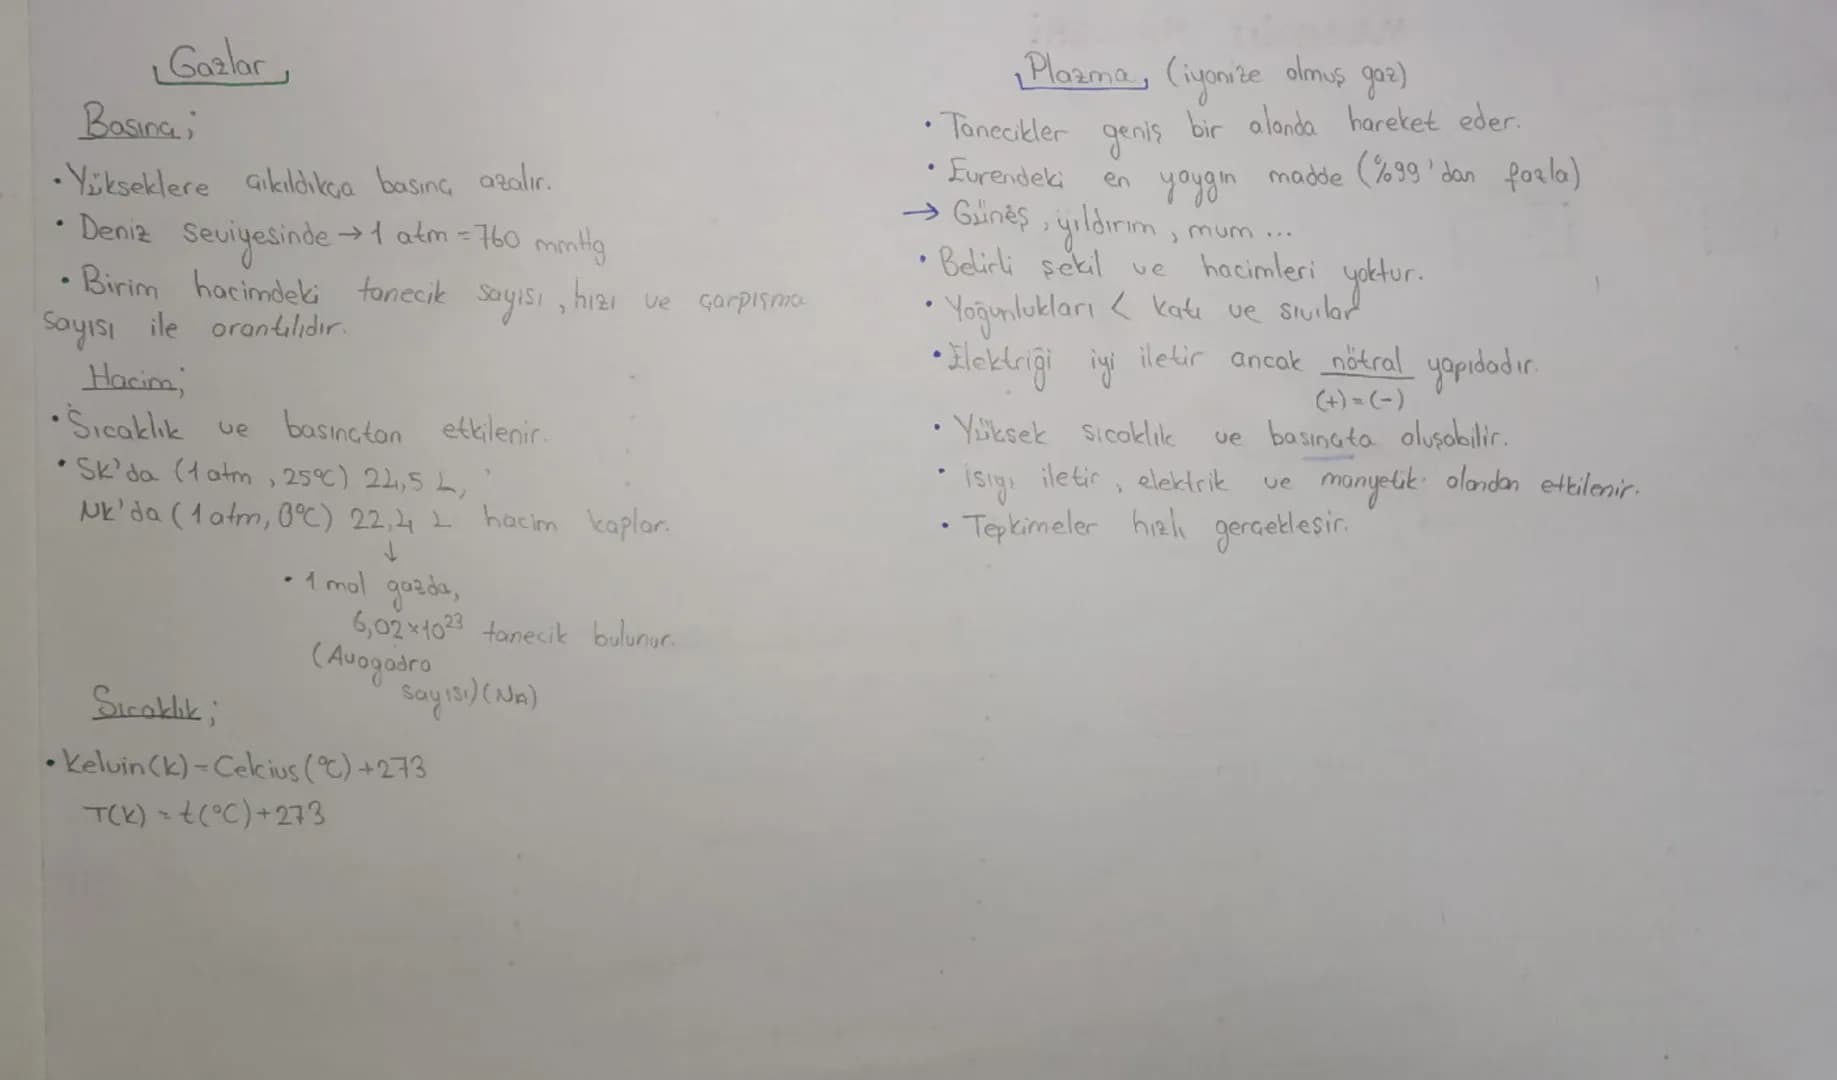 Gazlar
Basınç;
• Yükseklere çıkıldıkça basınç azalır.
• Deniz seviyesinde → 1 atm = 760 mmHg
• Birim hacimdeki tanecik sayısı, hızı ve çarpışma
sayısı ile orantılıdır.
Hacim;
• Sıcaklık ve basınçtan etkilenir.
• SK'da (1 atm, 25°C) 24,5 L,
NK'da (1 atm, 0°C) 22,4 L hacim kaplar.
↓
• 1 mol gazda,
6,02×10²³ tanecik bulunur.
(Avogadro
sayısı) (NA)
Sıcaklık;
• Kelvin(K) = Celcius(°C) +273
T(K) = t(°C) +273
Plazma, (iyonize olmuş gaz)
• Tanecikler geniş bir alanda hareket eder.
• Evrendeki en yaygın madde (%99'dan fazla)
→ Güneş, yıldırım, mum ...
• Belirli şekil ve hacimleri yoktur.
• Yoğunlukları < katı ve sıvılar
• Elektriği iyi iletir ancak nötral yapıdadır.
(+) = (-)
• Yüksek sıcaklık ve basınçta oluşabilir.
• ısıyı iletir, elektrik ve manyetik alandan etkilenir.
• Tepkimeler hızlı gerçekleşir.